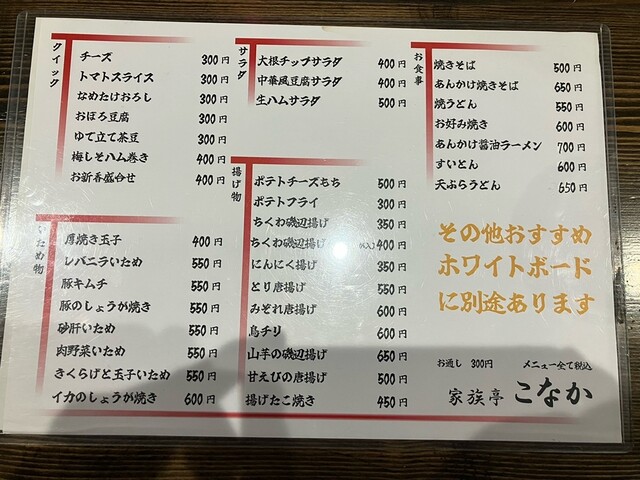 クイック
チーズ 300円
トマトスライス 300円
なめたけおろし 300円
おぼろ豆腐 300円
ゆで立て茶豆 300円
梅しそハム巻き 400円
お新香盛合せ 400円
いため物
厚焼き玉子 400円
レバニラいため 550円
豚キムチ 550円
豚のしょうが焼き 550円
砂肝いため 550円
肉野菜いため 550円
きくらげと玉子いため 550円
イカのしょうが焼き 600円
サラダ
大根チップサラダ 400円
中華風豆腐サラダ 400円
生ハムサラダ 500円
揚げ物
ポテトチーズもち 500円
ポテトフライ 300円
ちくわ磯辺揚げ 350円
ちくわ磯辺揚げ 400円
にんにく揚げ 350円
とり唐揚げ 550円
みぞれ唐揚げ 600円
鳥チリ 600円
山芋の磯辺揚げ 650円
甘えびの唐揚げ 500円
揚げたこ焼き 450円
お食事
焼きそば 500円
あんかけ焼きそば 650円
焼うどん 550円
お好み焼き 600円
あんかけ醤油ラーメン 700円
すいとん 600円
天ぷらうどん 650円
その他おすすめ
ホワイトボード
に別途あります
お通し 300円 メニュー全て税込
家族亭 こなか